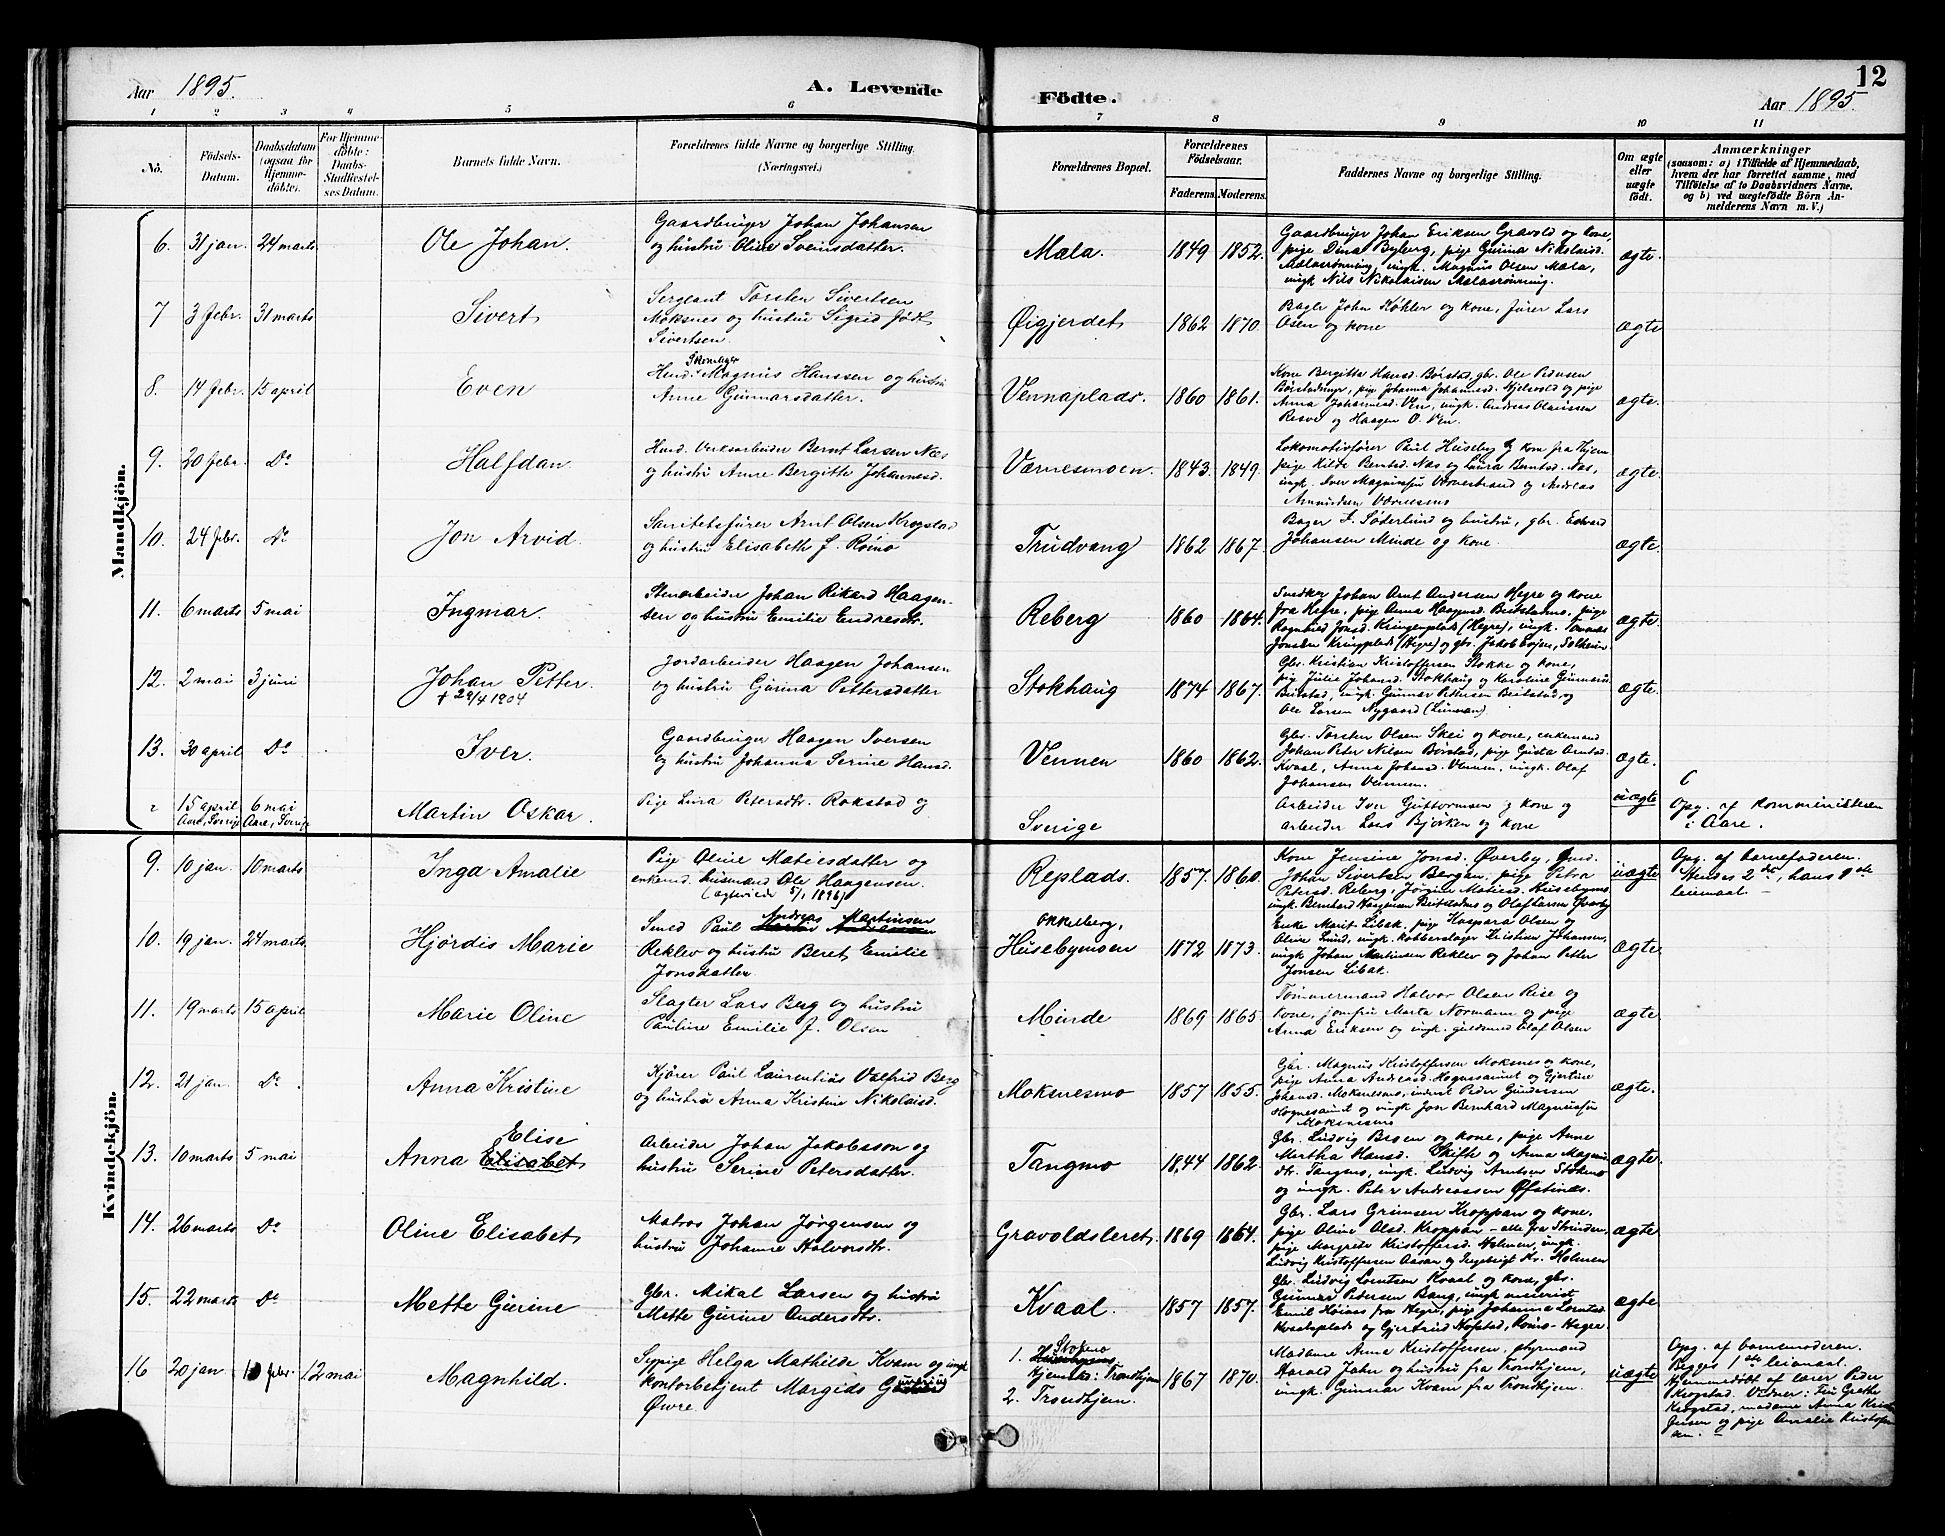 Aar 1895.
A. Levende
Födte.
12
Aar 1895.
1 2 3 4 5 6 7 8 9 10 11
No.
Födsels-Datum.
Daabsdatum (ogsaa for Hjemme-döbte).
For Hjemme-döbte: Daabs-Stadfæstel-ses Datum.
Barnets fulde Navn.
Forældrenes fulde Navne og borgerlige Stilling.
(Næringsvei.)
Forældrenes Bopæl.
Forældrenes Födselsaar.
Faderens. Moderens.
Faddernes Navne og borgerlige Stilling.
Om ægte eller uægte födt.
Anmærkninger
(saasom: a) i Tilfælde af Hjemmedaab,
hvem der har forrettet samme, med
Tilföielse af to Daabsvidners Navne,
og b) ved uægtefödte Börn An-
melderens Navn m. V.)
Mandkjön.
6. 31 jan. 24 marts Ole Johan.
Gaardbruger Johan Johansen
og hustru Oline Svensdatter.
Mæla. 1849 1852.
Gaardbruger Johan Eriksen Gravold og kone,
pige Dina Byberg, pige Gurina Nikolaisd.
Mælasrønning, ungk. Magnus Olsen Mæla,
ungk Nils Nikolaisen Mælasrønning.
ægte.
7 3 febr. 31 marts Sivert
Sergeant Torsten Sivertsen
Moksnes og hustru Sigrid født
Sivertsen.
Øigjerdet 1862 1870.
Bager John Køhler og kone, furer Lars
Osen og kone
ægte
8. 14 febr. 15 april Even
Skomager
Husd. Magnus Hanssen og hustru
Anne Gunnarsdatter.
Vennaplads. 1860 1861.
Kone Bergitta Hansd. Børstad, gbr. Ole Petersen
Børstadunger, pige Johanna Johannesd. Hjelsvold og pige
Anna Johannesd. Ven, ungk. Andreas Olaussen
Resve og Haagen O. Ven.
ægte.
9. 20 febr. Do Halfdan
Husd. Verksarbeider Bernt Larsen Næs
og hustru Anne Bergitte Johannesd.
Værnesmoen. 1843. 1849.
Lokomotivfører Paul Huseby og kone fra Thjem
pige Hilda Berntsd. Næs og Laura Berntsd. Næs,
ungk. Iver Magnussen Værnesbrand og Andreas
Amundsen Værnesmo
ægte.
10. 24 febr. Do Jon Arvid.
Sanitetsfurer Arnt Olsen Krogstad
og hustru Elisabeth f. Romo
Trudvang 1862 1867.
Bager F. Søderlund og hustru, gbr. Edvard
Johansen Minde og kone.
ægte.
11. 6 marts 5 mai Ingmar.
Stenarbeider Johan Rikard Haagen-
sen og hustru Emilie Endresdtr.
Reberg 1860 1864.
Snedker Johan Arnt Andersen Hegre og kone
fra Hegre, pige Anna Haagensd. Beistadmo, pige
Ragnhild Jonsd. Kringenplads (Hegre), ungk. Tomas
Jonsen Kringplads (Hegre) og gbr. Jakob Evjen, Solheim
ægte.
12. 2 mai 3 juni Johan Petter.
† 28/4 1904
Jordarbeider Haagen Johansen
og hustru Gjurina Pettersdatter
Stokhaug 1874 1867.
Gbr. Kristian Kristoffersen Stokke og kone,
pig Julie Johansd. Stokhaug og Karoline Gunnarsd.
Beistad, ungk. Gunnar Pettersen Beistad og
Ole Larsen Nygaard (Lunman).
ægte.
13. 30 april Do Iver.
Gaardbruger Haagen Iversen
og hustru Johanna Serine Hansd.
Vennen 1860 1862.
Gbr. Torsten Olsen Skei og kone, enkemand
Johan Peter Nilsen Børstad, pige Gusta Arntsd.
Kvaal, Anna Johansd. Vennen, ungk. Olaf
Johansen Vennen.
ægte.
15 april 6 mai
Aare, Sverige Aare, Sverige
Martin Oskar.
Pige Lina Petersdtr. Rokstad og
Sverige
Arbeider Iver Guttormsen og kone og
arbeider Lars Bjørken og kone
uægte
Opg. af kommunisteren
i Aare.
Kvindekjön.
9. 10 jan. 10 marts Inga Amalie
Pige Oline Matiesdatter og
enkemd. husmand Ole Haagensen.
(ægteviede 5/1 1896)
Replads. 1857 1860.
Kone Jensine Jonsd. Øverby, gmd.
Johan Sivertsen Bergan, pige Petra
Petersd. Reberg, Jørgine Matiasd. Husebymo
ungk. Bernhard Haagensen Beistadmo og Olaf Larsen Øverby
uægte
Opg. af barnefaderen.
Hendes 2det, hans 1ste
leiemaal.
10. 19 jan. 24 marts Hjørdis Marie
Smed Paul Andreas Martinsen
Reklev og hustru Beret Emilie
Jonsdatter
Okkelberg,
Husebymoen 1872 1873.
Enke Marit Libak, pige Kaspara Olsen og
Oline Lund, ungk. kobberslager Kristian Johansen,
ungk Johan Martinsen Reklev og Johan Petter
Jonsen Libak.
ægte.
11. 19 marts 15 april Marie Oline
Slagter Lars Berg og hustru
Pauline Emilie f. Olsen
Minde 1869 1865.
Tømmermand Halvor Olsen Rise og
kone, jomfru Marta Normann og pige
Anna Eriksen og ungk. guldsmed Olaf Olsen
ægte.
12. 21 jan. Do Anna Kristine
Kjører Paul Laurentius Valfrid Berg
og hustru Anna Kristine Nikolaisd.
Moksnesmo 1857 1855.
Gbr. Magnus Kristoffersen Moksnes og kone,
pige Anna Andreasd. Hognesaunet og Gjertine
Johansd. Moksnesmo, inderst Peder Gundersen
Hognesaunet og ungk Jon Bernhard Magnussen
Moksnesmo
ægte.
13. 10 marts 5 mai Anna Elisabet Elise
Arbeider Johan Jakobsson og
hustru Serine Petersdatter.
Tangmo 1844 1862.
Gbr. Ludvig Bråen og kone, pige Anne
Martha Hansd. Skifte og Anna Magnus
dtr. Tangmo, ungk. Ludvig Arntsen Stokmo
og ungk. Peter Andreassen Øfstinæs.
ægte.
14. 26 marts Do Oline Elisabet
Matros Johan Jørgensen og
hustru Johanne Halvorsdtr.
Gravoldsleret. 1869 1864.
Gbr. Lars Grimsen Kroppan og kone,
pige Oline Olsd. Kroppan – alle fra Strinden,
pige Margrete Kristoffersd. Holmen, ungk.
Ludvig Kristoffersen Aasan og Ingebrigt Kr. Holmen
ægte
15. 22 marts Do Mette Gurine
Gbr. Mikal Larsen og hustru
Mette Gurine Andersdtr.
Kvaal. 1857 1857.
Gbr. Ludvig Lorntsen Kvaal og kone, gbr.
Gunnar Petersen Bang, ungk meierist
Emil Høiaas fra Hegre, pige Johanna Lorntsd.
Kvaalsplads og Gjertrud Hofstad, Romo-Hager.
ægte
16 20 jan 10 febr. 12 mai Magnhild.
Sypige Helga Mathilde Kvam og ungk
kontorbetjent Margids
Øvre
1. Stokmo
Hjemsted: Trondhjem
2. Trondhjem.
1867 1870.
Madame Anna Kristoffersen, styrmand
Harald Jahn og hustru fra Trondhjem,
ungk. Gunnar Kvam fra Trondhjem.
uægte
Opg. af barnemoderen.
Begges 1ste leiemaal.
Hjemmedøbt af lærer Peder
Krogstad. Vidner: Fru Grethe
Krogstad, madame Anna Krist
Jensen og pige Amalie Kristofer
sen.